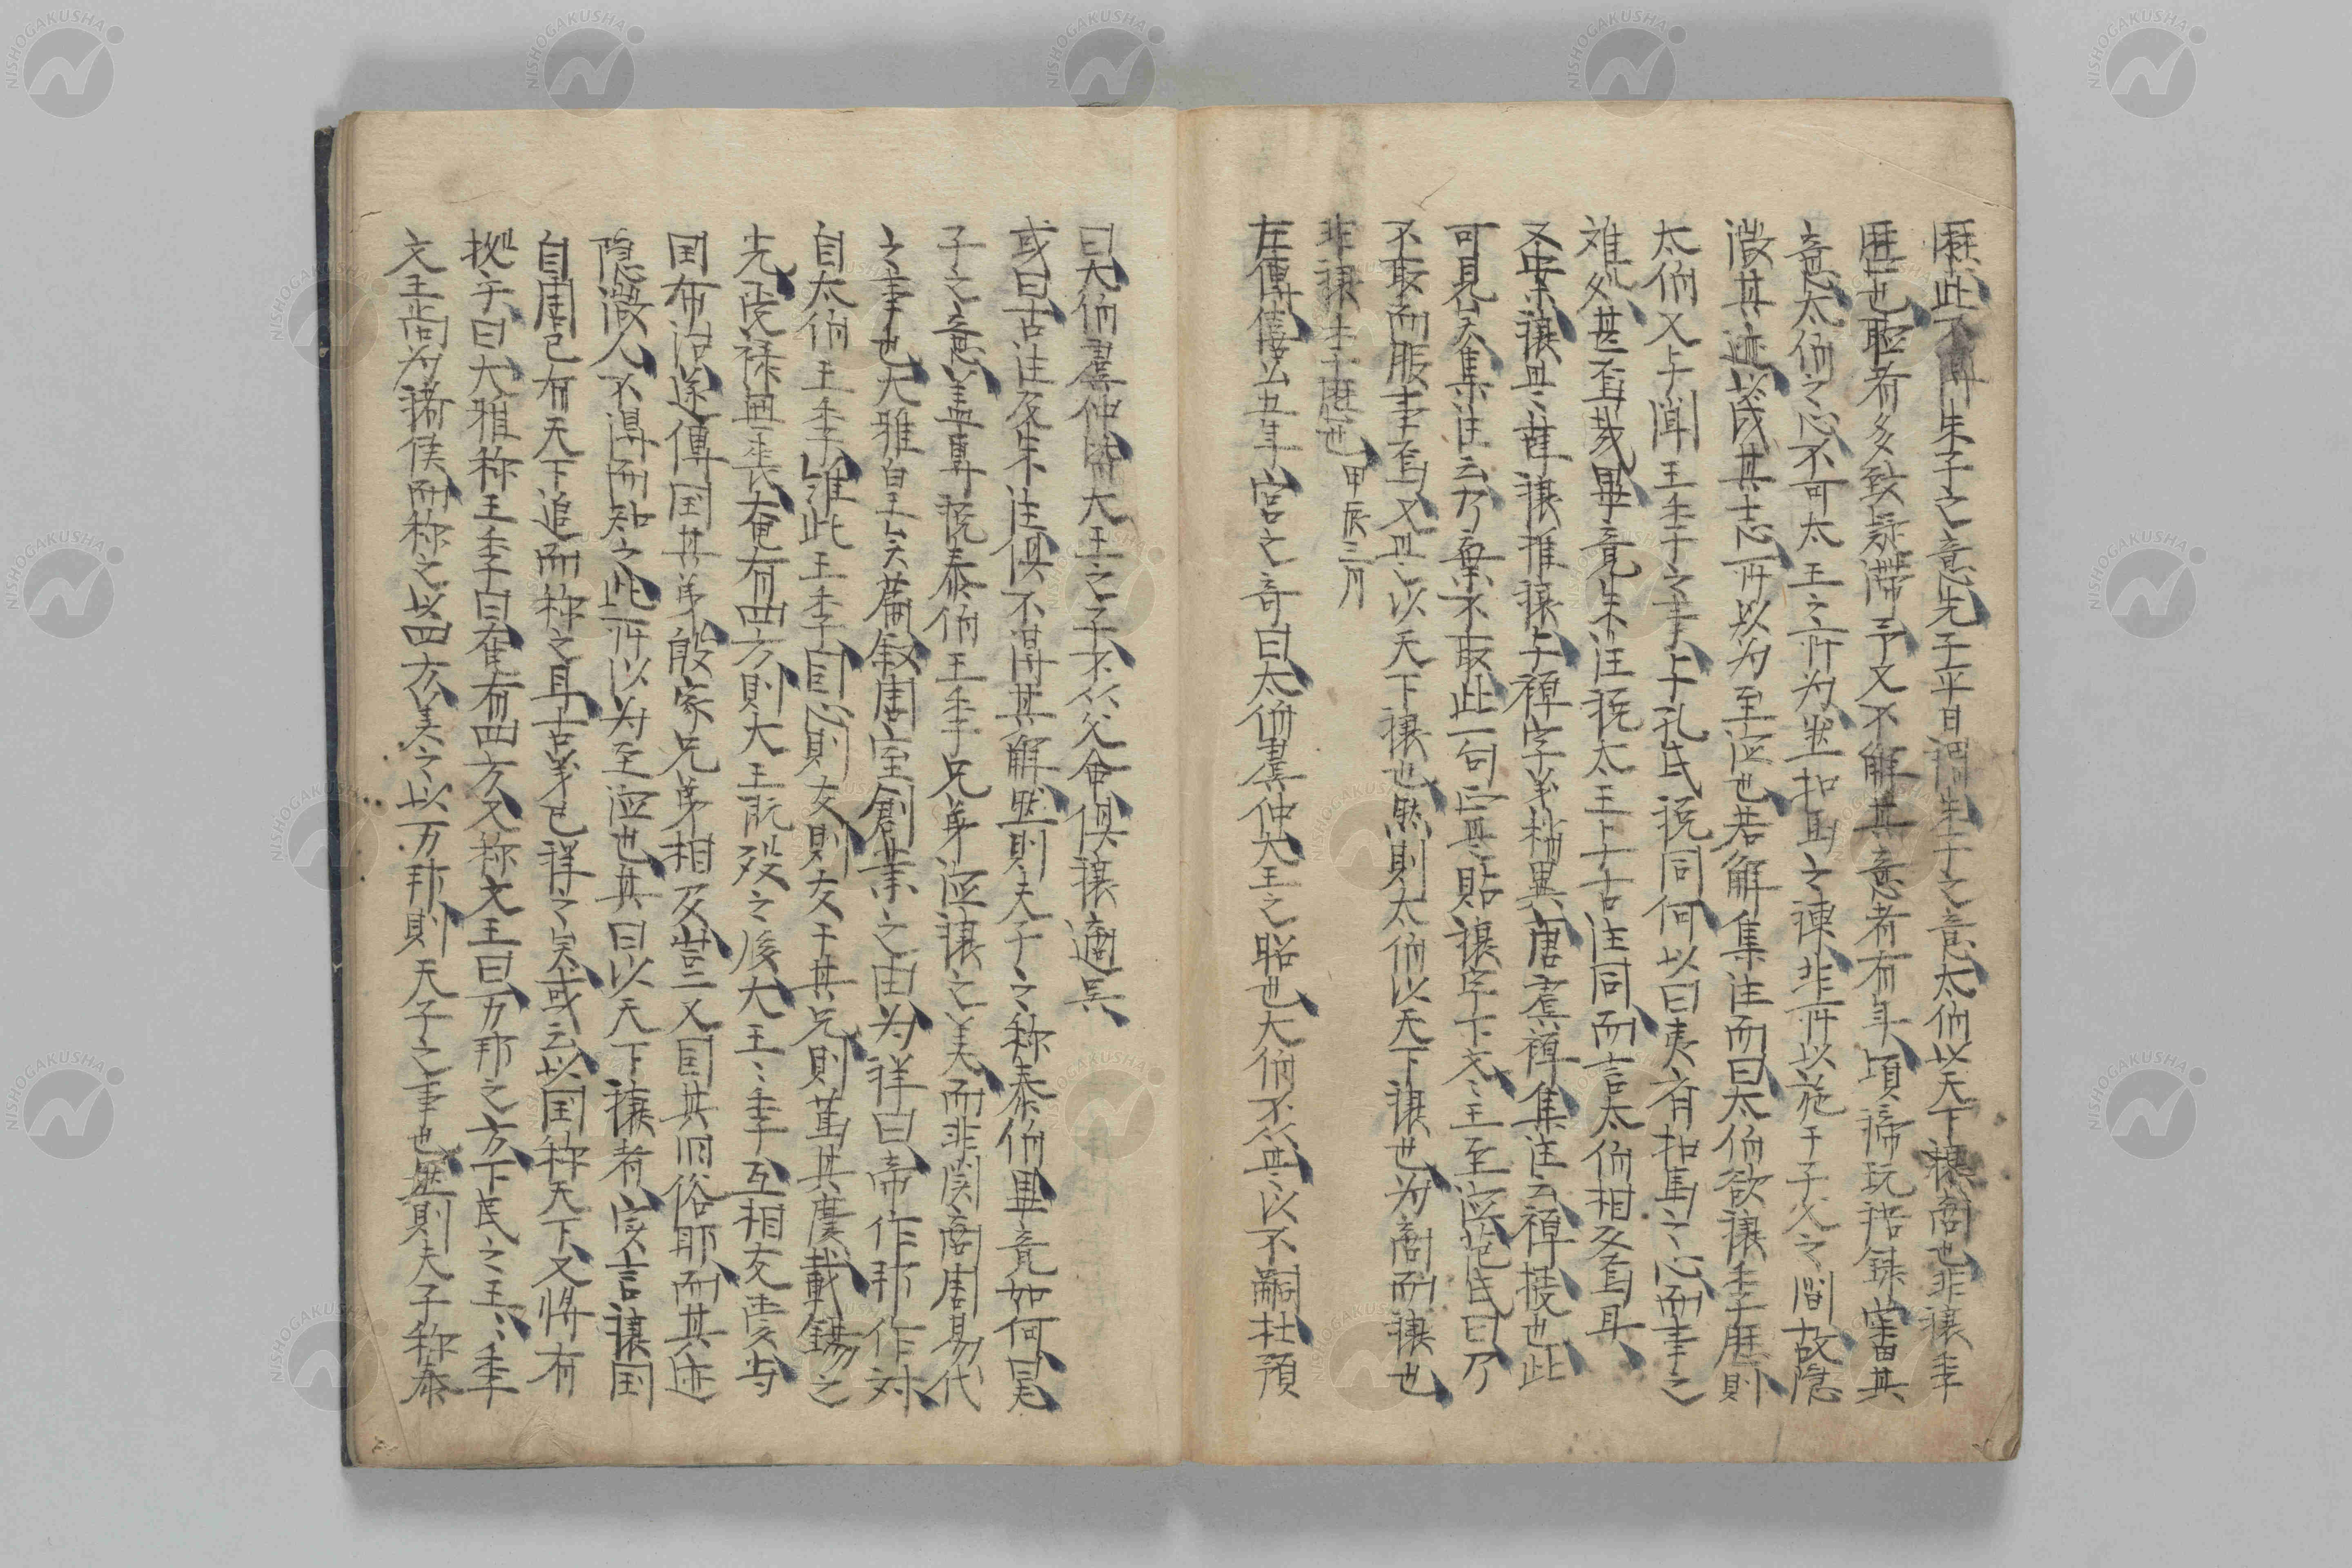 歴此不得朱子之意先子平日謂朱子之意太伯以天下譲商也非譲季
歴也聴者多致疑滞予又不解其意者有年頃稀玩語録嘗其
意太伯之心不可太王之所為坐扣馬之諫非所以施于子父之間故隠
微其迹以成其志所以为至徳也若解集注而曰太伯欲譲季歴則
太伯又与聞王季之事与孔氏説同何以曰夷斉扣馬之心而事之
难処甚否哉畢竟朱注説太王与古注同而言太伯相反焉耳
又按譲与辞譲推譲与禅字羊格異唐虞禅集注云禅授也此
可見矣集注云乃棄不取此一句实貼譲字下文文王至徳范氏曰乃
不取而服事焉又与以天下譲也然則太伯以天下譲也为商而譲也
非譲季歴也 甲辰三月
左傳僖公五年宮之奇曰太伯虞仲大王之昭也大伯不从是以不嗣杜預
曰大伯虞仲皆大王之子不从父命俱譲適呉
或曰古注及朱注俱不得其解然則夫子之称泰伯畢竟如何曰
子之意盖専説泰伯王季兄弟徳譲之美而非関商周易代
之事也大雅皇王矣篇叙周室創業之由为祥曰帝作邦作対
自太伯王季維此王季因心則友則友于其兄則篤其慶載錫之
光受禄無喪奄有四方則大王既殁之後大王王季互相友愛与
国布治遂傳国其弟殷家兄弟相及豈又因其旧俗耶而其迹
隠微人不得而知之此所以为至徳也其曰以天下譲者实言譲国
自周已有天下追而称之耳古羊已祥之矣或云以国称天下又将有
抝乎曰大雅称王季曰奄有四方又称文王曰万邦之方下民之王王季
文王尚为諸侯而称之以四方美之以万邦則天子之事也然則夫子称泰